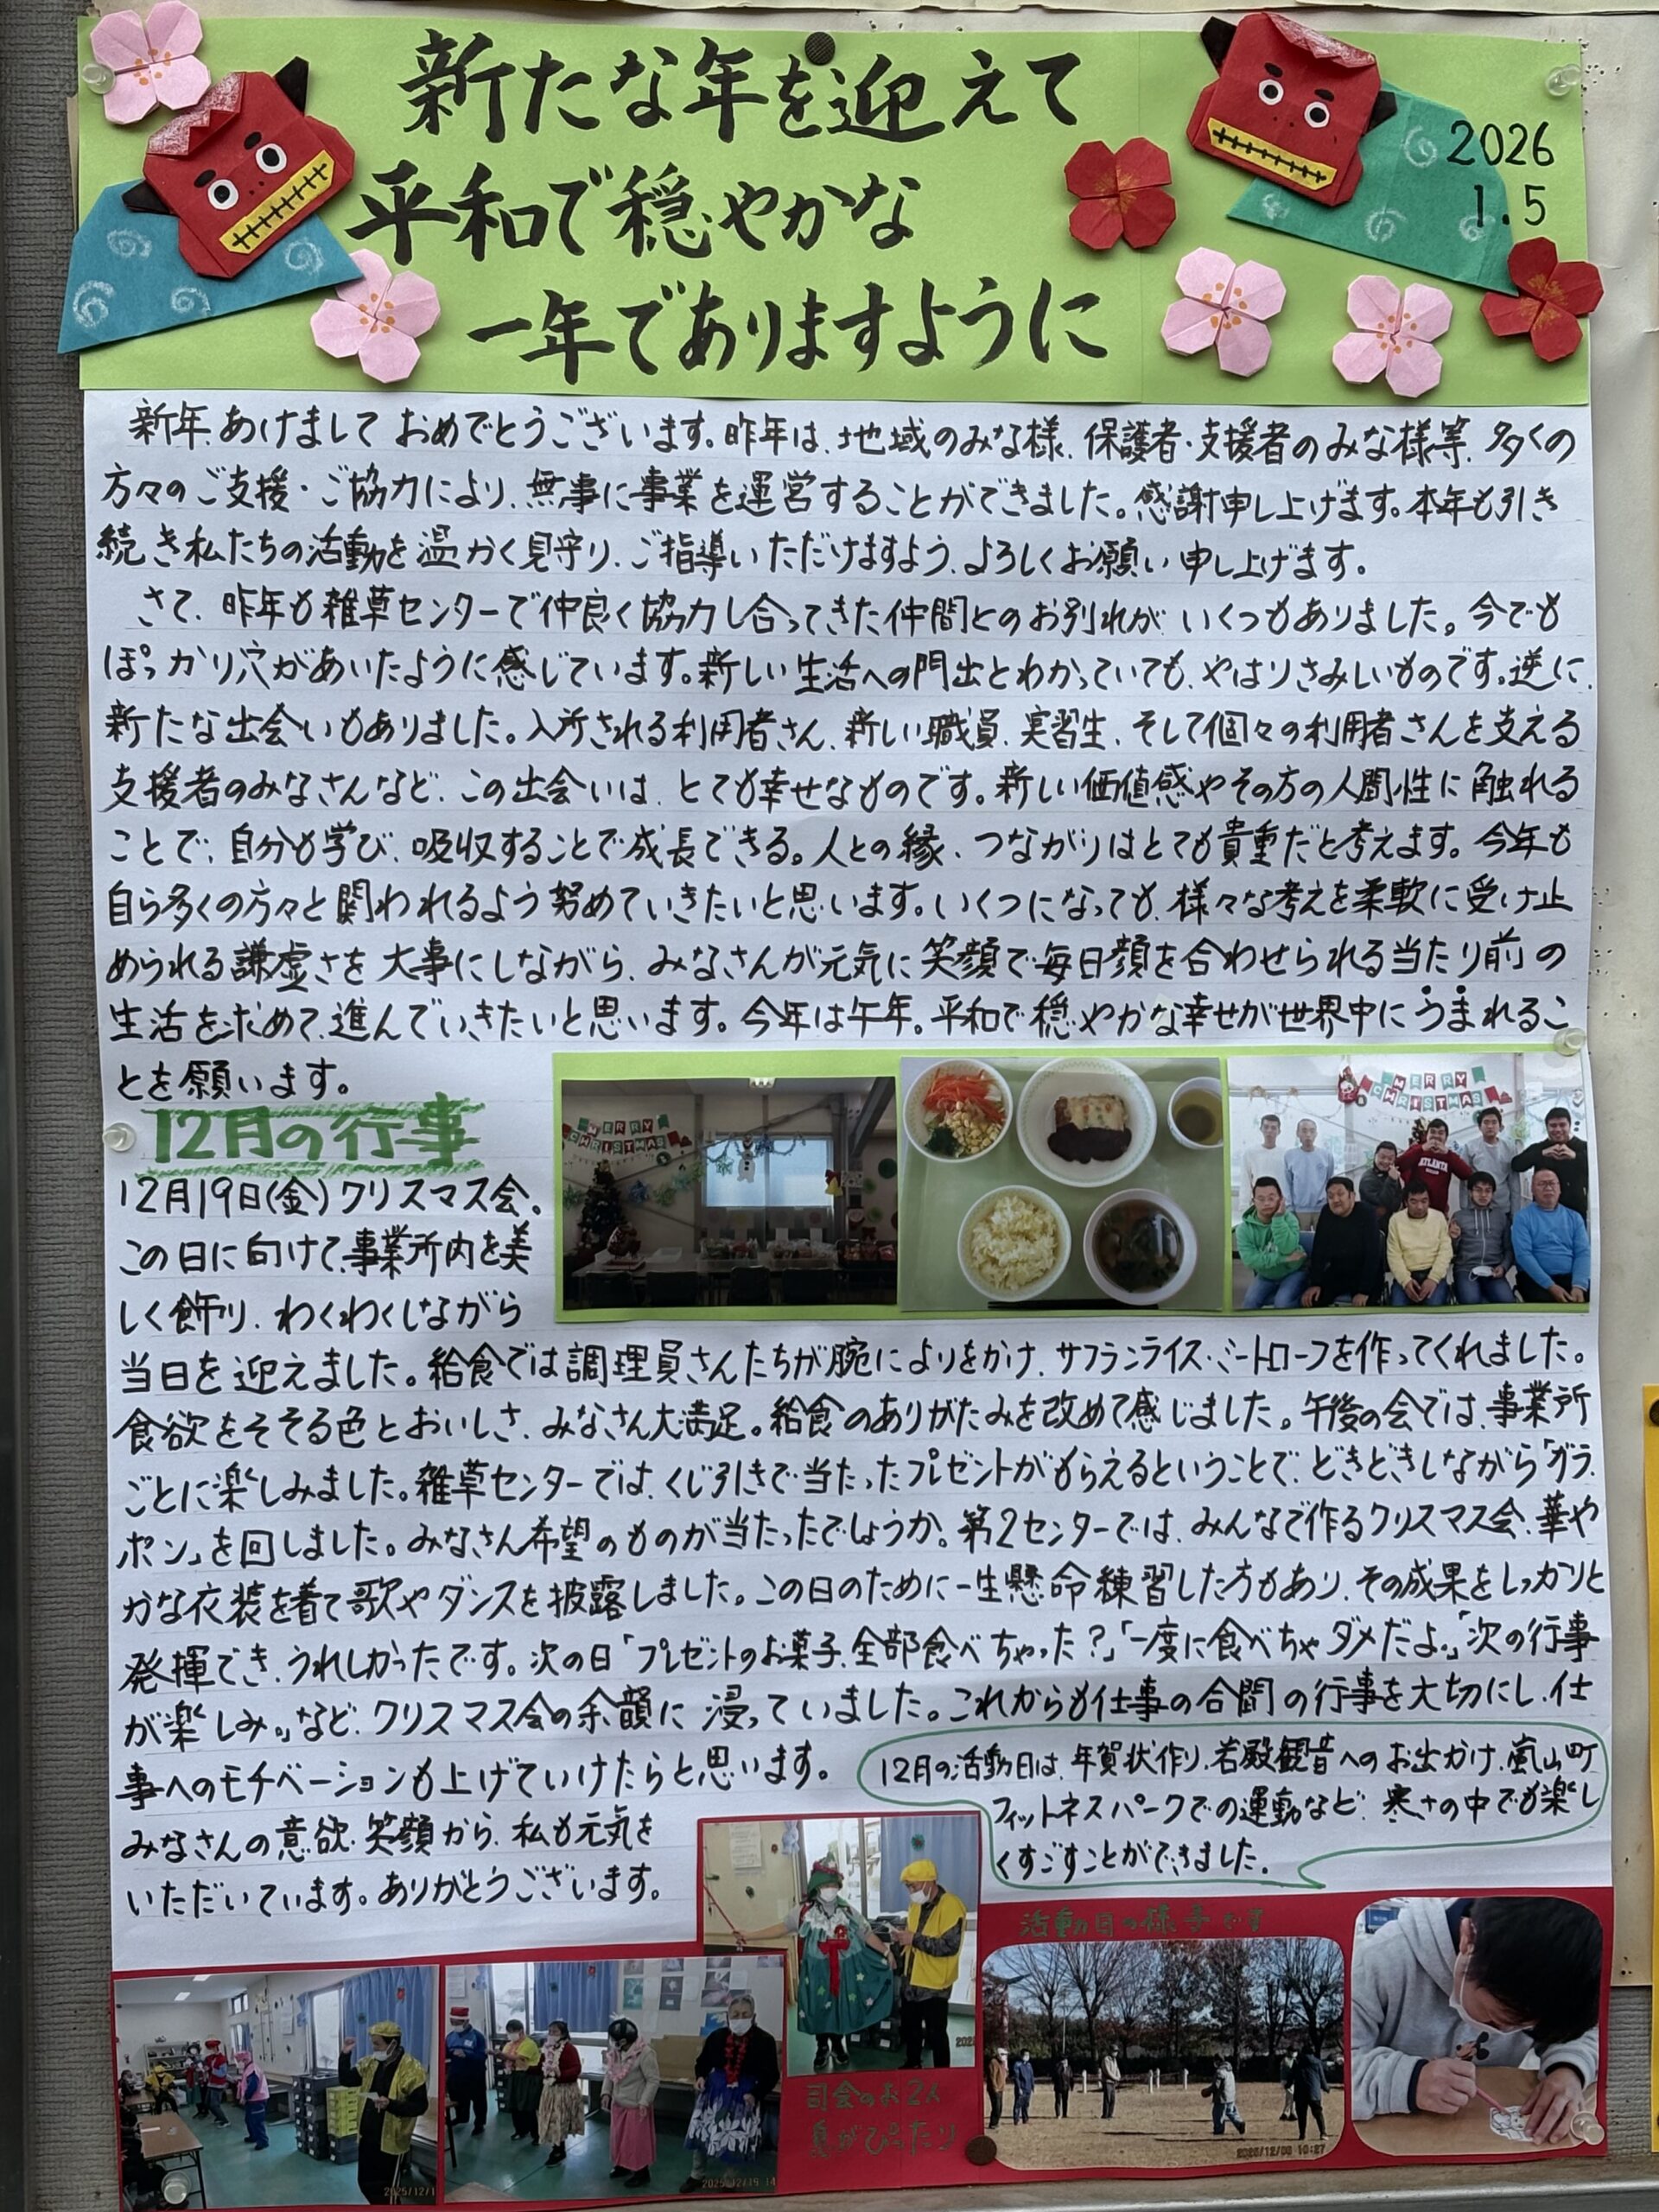 新たな年を迎えて
平和で穏やかな
一年でありますように
2026
1.5
新年あけましておめでとうございます。昨年は、地域のみな様、保護者・支援者のみな様等、多くの
方々のご支援・ご協力により、無事に事業を運営することができました。感謝申し上げます。本年も引き
続き私たちの活動を温かく見守り、ご指導いただけますよう、よろしくお願い申し上げます。
さて、昨年も雑草センターで仲良く協力し合ってきた仲間とのお別れがいくつもありました。今でも
ぽっかり穴があいたように感じています。新しい生活への門出とわかっていても、やはりさみしいものです。逆に、
新たな出会いもありました。入所される利用者さん、新しい職員、実習生、そして個々の利用者さんを支える
支援者のみなさんなど、この出会いは、とても幸せなものです。新しい価値感やその方の人間性に触れる
ことで、自分も学び、吸収することで成長できる。人との縁、つながりはとても貴重だと考えます。今年も
自ら多くの方々と関われるよう努めていきたいと思います。いくつになっても、様々な考えを柔軟に受け止
められる謙虚さを大事にしながら、みなさんが元気に笑顔で毎日顔を合わせられる当たり前の
生活を求めて、進んでいきたいと思います。今年は午年。平和で穏やかな幸せが世界中にうまれるこ
とを願います。
12月の行事
MERRY
CHRISTMAS
MERRY
CHRISTMAS
ATLANTA
12月19日(金)クリスマス会。
この日に向けて、事業所内を美
しく飾り、わくわくしながら
当日を迎えました。給食では調理員さんたちが腕によりをかけ、サフランライス・ミートローフを作ってくれました。
食欲をそそる色とおいしさ、みなさん大満足。給食のありがたみを改めて感じました。午後の会では、事業所
ごとに楽しみました。雑草センターでは、くじ引きで当たったプレゼントがもらえるということで、どきどきしながら「ガラ
ポン」を回しました。みなさん希望のものが当たったでしょうか。第2センターでは、みんなで作るクリスマス会、華や
かな衣装を着て歌やダンスを披露しました。この日のために一生懸命練習した方もあり、その成果をしっかりと
発揮でき、うれしかったです。次の日「プレゼントのお菓子、全部食べちゃった?」「一度に食べちゃダメだよ。」「次の行事
が楽しみ。」など、クリスマス会の余韻に浸っていました。これからも仕事の合間の行事を大切にし、仕
事へのモチベーションも上げていけたらと思います。
みなさんの意欲、笑顔から、私も元気を
いただいています。ありがとうございます。
12月の活動日は、年賀状作り、岩殿観音へのお出かけ、嵐山町
フィットネスパークでの運動など、寒さの中でも楽し
くすごすことができました。
活動日の様子です
司会のお2人
息がぴったり
2025/12/1
2025/12/19 14
202